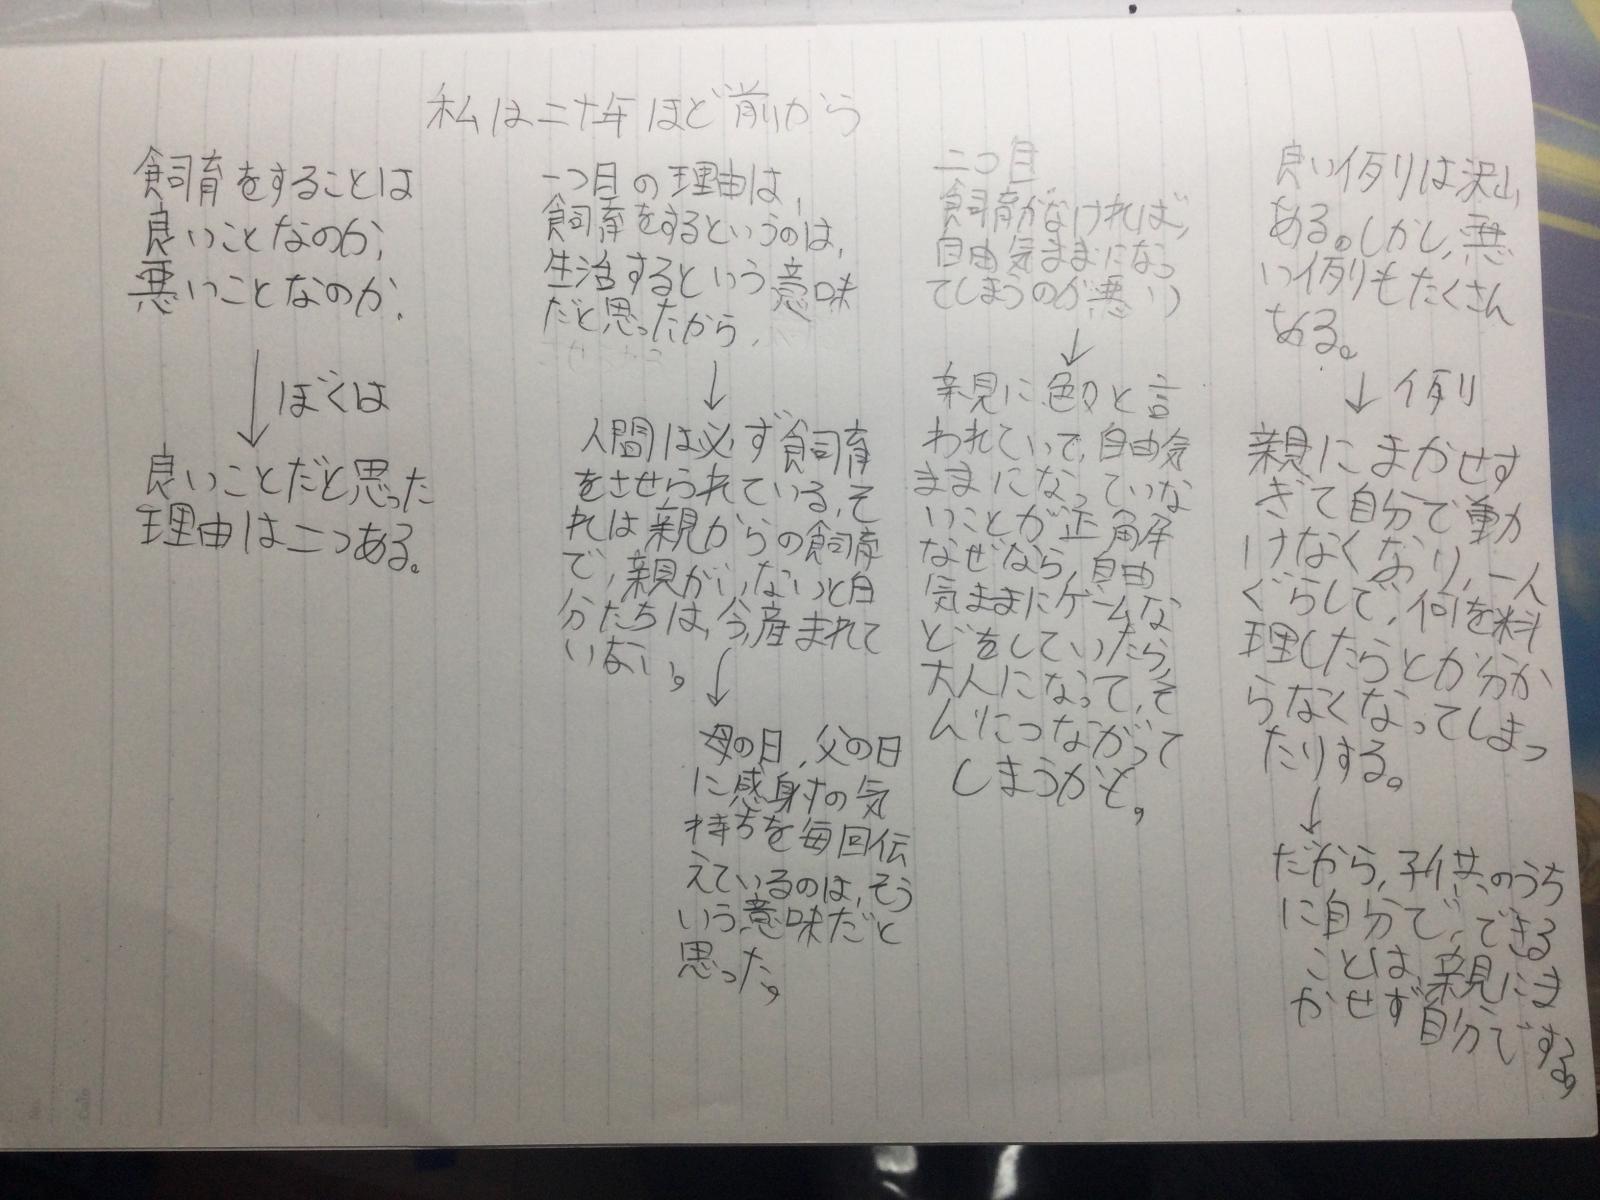 私は二十年ほど前から
飼育をすることは
良いことなのか,
悪いことなのか.
ぼくは
良いことだと思った
理由は二つある。
一つ目の理由は,
飼育をするというのは,
生活するという意味
だと思ったから,
人間は必ず飼育
をさせられている,そ
れは親からの飼育
で,親がいないと自
分たちは,今産まれて
いない。
母の日,父の日
に感謝の気
持ちを毎回伝
えているのは,そう
いう意味だと
思った。
二つ目
飼育がなければ,
自由気ままになっ
てしまうのが悪い
親に色々と言
われていて,自由気
ままになっていな
いことが正解
なぜなら,自由
気ままにゲームな
どをしていたら,
大人になって,そ
んにつながって
しまうかも。
良い例りは沢山
ある。しかし,悪
い例りもたくさん
ある。
例り
親にまかせす
ぎて自分で動
けなくなり,一人
ぐらしで,何を料
理したらとか分か
らなくなってしまっ
たりする。
だから,子供のうち
に自分で,できる
ことは,親にま
かせず自分でする。